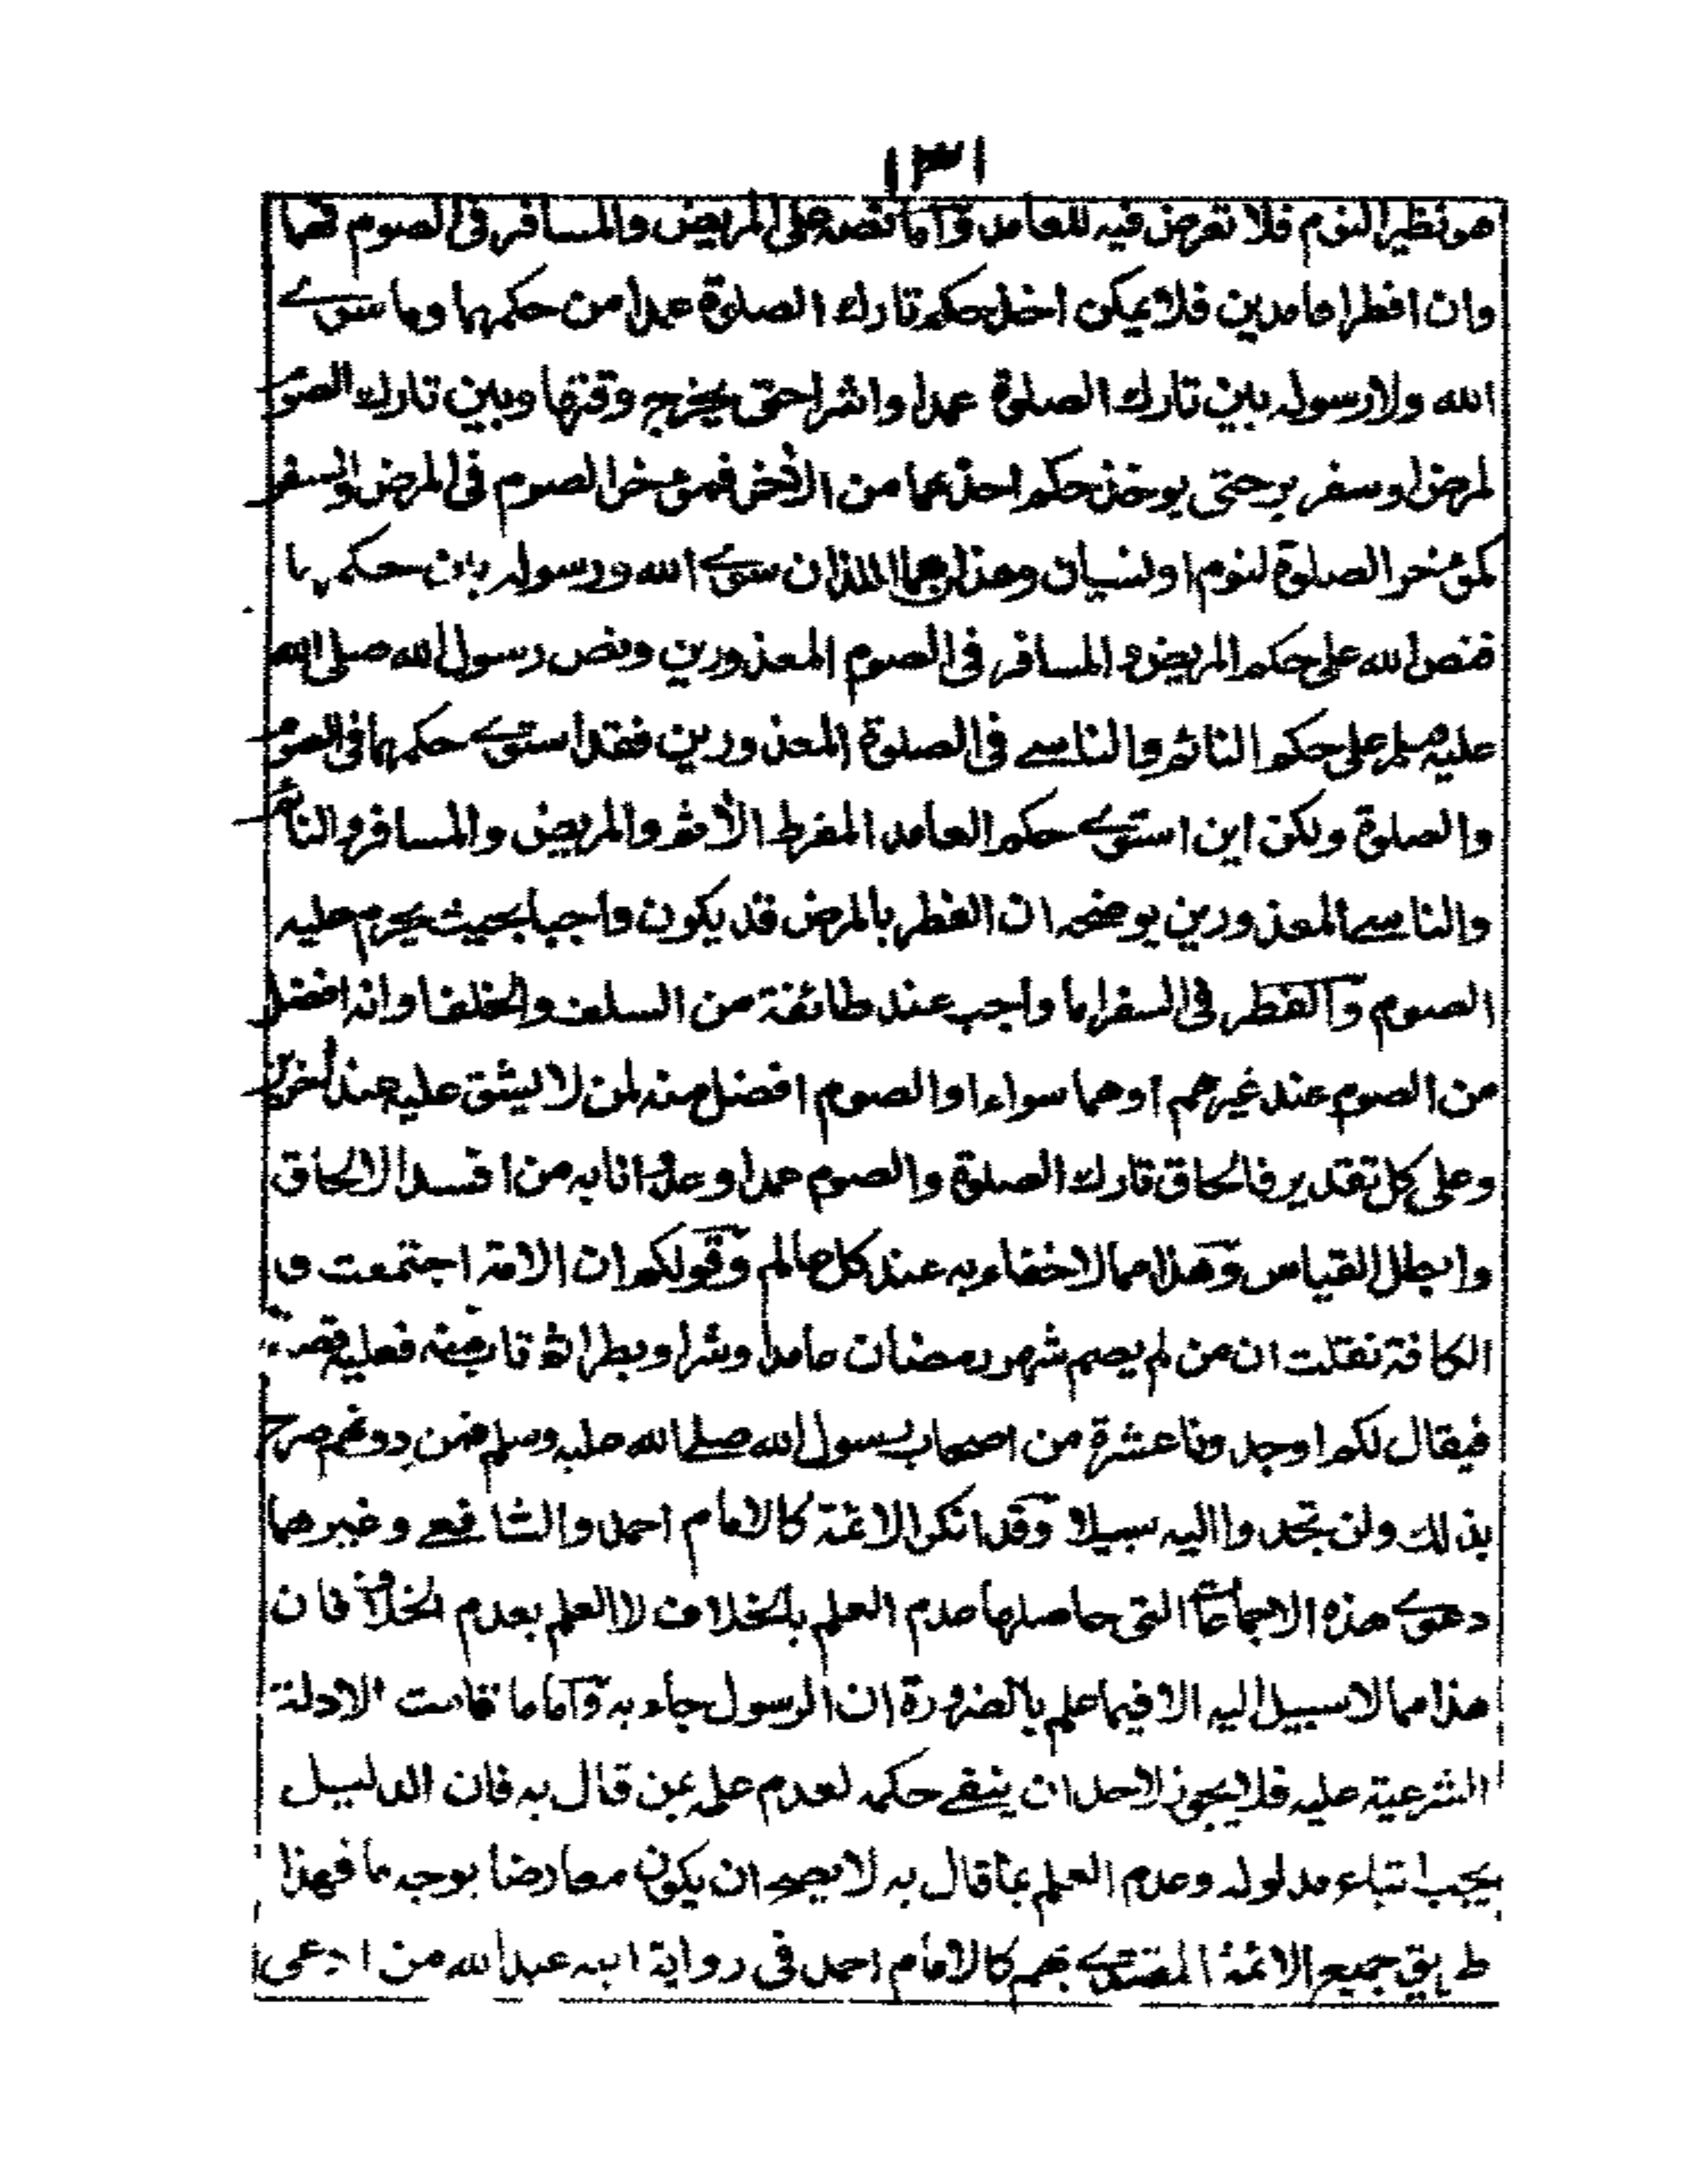 ١٣١
هو نظير النوم فلا تعرض فيه للعامد وآما نصه على المريض والمسافر فى الصوم فهما
وان افطرا عامدين فلا يمكن اخذ حكم تارك الصلوة عمدا من حكمهما وما سوى
الله ولا رسوله بين تارك الصلوة عمدا واشرا حتى يخرج وقتها وبين تارك الصوم
لمرض او سفر حتى يوخذ حكم احدهما من الآخر فمؤخر الصوم فى المرض والسفر
كمؤخر الصلوة لنوم او نسيان وهذان هما اللذان سوى الله ورسوله بين حكميهما
فنص الله على حكم المريض والمسافر فى الصوم المعذورين ونص رسول الله صلى الله
عليه وسلم على حكم النائم والناسى فى الصلوة المعذورين فقد استوى حكمهما فى الصوم
والصلوة ولكن اين استوى حكم العامد المفرط الآثم والمريض والمسافر والنائم
والناسى المعذورين يوضحه ان الفطر بالمرض قد يكون واجبا بحيث يحرم عليه
الصوم وآلفطر فى السفر اما واجب عند طائفة من السلف والخلف او انه افضل
من الصوم عند غيرهم او هما سواء او الصوم افضل منه لمن لا يشق عليه عند آخرين
وعلى كل تقدير فالحاق تارك الصلوة والصوم عمدا وعدوانا به من افسد الالحاق
وابطل القياس وهذا مما لا خفاء به عند كل عالم وقولكم ان الامة اجتمعت و
الكافة نقلت ان من لم يصم شهر رمضان عامدا واشرا وبطرا ثم تاب منه فعليه قضاءه
فيقال لكم اوجدونا عشرة من اصحاب رسول الله صلى الله عليه وسلم فمن دونهم صرح
بذلك ولن تجدوا اليه سبيلا وقد انكر الائمة كالامام احمد والشافعى وغيرهما
دعوى هذه الاجماعات التى حاصلها عدم العلم بالخلاف لا العلم بعدم الخلاف فان
هذا مما لا سبيل اليه الا فيما علم بالضرورة ان الرسول جاء به وآما ما قامت الادلة
الشرعية عليه فلا يجوز لاحد ان ينفى حكمه لعدم علمه بمن قال به فان الدليل
يجب اتباع مدلوله وعدم العلم بما قال به لا يصح ان يكون معارضا بوجه ما فهذا
طريق جميع الائمة المقتدى بهم كالامام احمد فى رواية ابنه عبد الله من ادعى